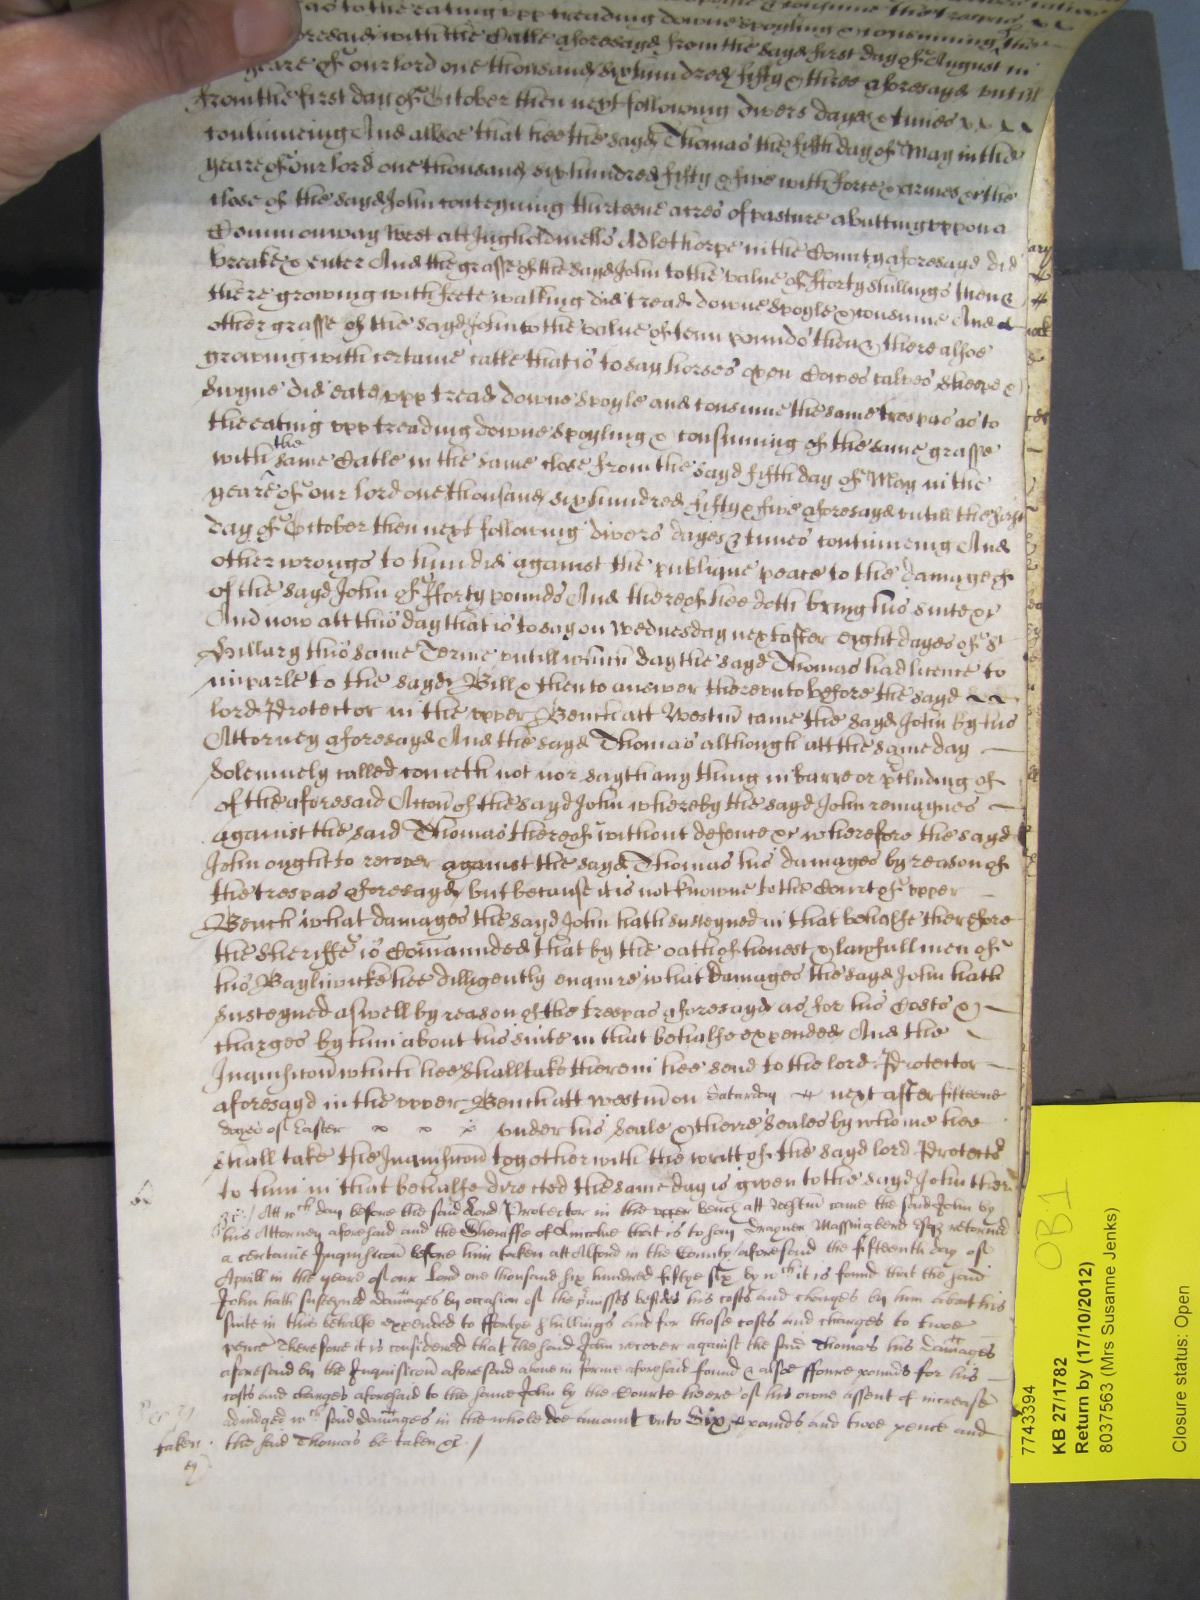 as to the eating upp treading downe spoyling & consuming
aforesaid with the Catle aforesayd from the sayd first day of August in
yeare of our lord one thousand six hundred fifty & three aforesayd untill
from the first day of October then next following divers dayes & tymes
contineing And allsoe that hee the sayd Thomas the fifth day of May in the
yeare of our lord one thousand six hundred fifty & five with force & armes &c the
close of the sayd John conteyning thirteene acres of pasture abutting uppon a
Common way West att Ingholdmells Adlethorpe in the County aforesayd did
breake & enter And the grasse of the sayd John to the value of fforty shillings then &
there growing with feete walking did tread downe spoyle & consume And
other grasse of the sayd John to the value of tenn pounds then & there alsoe
growing with certaine catle that is to say horses oxen Cowes calves sheepe &
swyne did eate upp tread downe spoyle and consume the same trespas as to
the eating upp treading downe spoyling & consuming of the same grasse
with the same Catle in the same close from the sayd fifth day of May in the
yeare of our lord one thousand six hundred fifty & five aforesayd untill the first
day of October then next following divers dayes & tymes contineing And
other wrongs to him did against the publique peace to the damage of
of the sayd John of fforty pounds And thereof hee doth bring his suite &c
And now att this day that is to say on Wednesday next after eight dayes of St
Hillary this same Terme untill which day the sayd Thomas had licence to
imparle to the sayd Bill & then to answer thereunto before the sayd
lord Protector in the upper Bench att Westm came the sayd John by his
Attorney aforesayd And the sayd Thomas although att the same day
solemnely called cometh not nor sayth any thing in barre or pcluding of
of the aforesaid Accon of the sayd John whereby the sayd John remaynes
against the said Thomas thereof without defence &c wherefore the sayd
John ought to recover against the sayd Thomas his damages by reason of
the trespas aforesayd but because it is not knowne to the Court of upper
Bench what damages the sayd John hath susteyned in that behalfe therefore
the Sheriffe is Comannded that by the oath of honest & lawfull men of
his Bayliwicke hee dilligently enquire what damages the sayd John hath
susteyned aswell by reason of the trespas aforesayd as for his Costs &
charges by him about his suite in that behalfe expended And the
Inquisicon which hee shall take therein hee send to the lord Protector
aforesayd in the upper Bench att westm on Saturday next after fifteene
dayes of Easter under his Seale & there Seales by whome hee
shall take the Inquisicon together with the writt of the sayd lord Protector
to him in that behalfe directed the same day is given to the sayd John there
&c Att wch day before the said Lord Protector in the upper bench att Westm came the said John by
his Attorney aforesaid and the Sheriffe of Lincolne that is to say Drayner Massingberd Esqr retorned
a certaine Inquisicon before him taken att Alford in the County aforesaid the fifteenth day of
Aprill in the yeare of our Lord one thousand six hundred fiftye six by wch it is found that the said
John hath susteyned damages by occasion of the pmisses besides his costs and charges by him about his
suite in this behalfe expended to ffortye shillings and for those costs and charges to twoe
pence Therefore it is considered that the said John recover against the said Thomas his damages
aforesaid by the Inquisicon aforesaid above in forme aforesaid found & alsoe ffoure pounds for his
costs and charges aforesaid to the same John by the Courte heere of his owne assent of increase
adiudged wch said damages in the whole doe amount unto Six pounds and twoe pence and
taken. the said Thomas be taken &c /
7743394
KB 27/1782
Return by (17/10/2012)
8037563 (Mrs Susanne Jenks)
Closure status: Open
OB 1